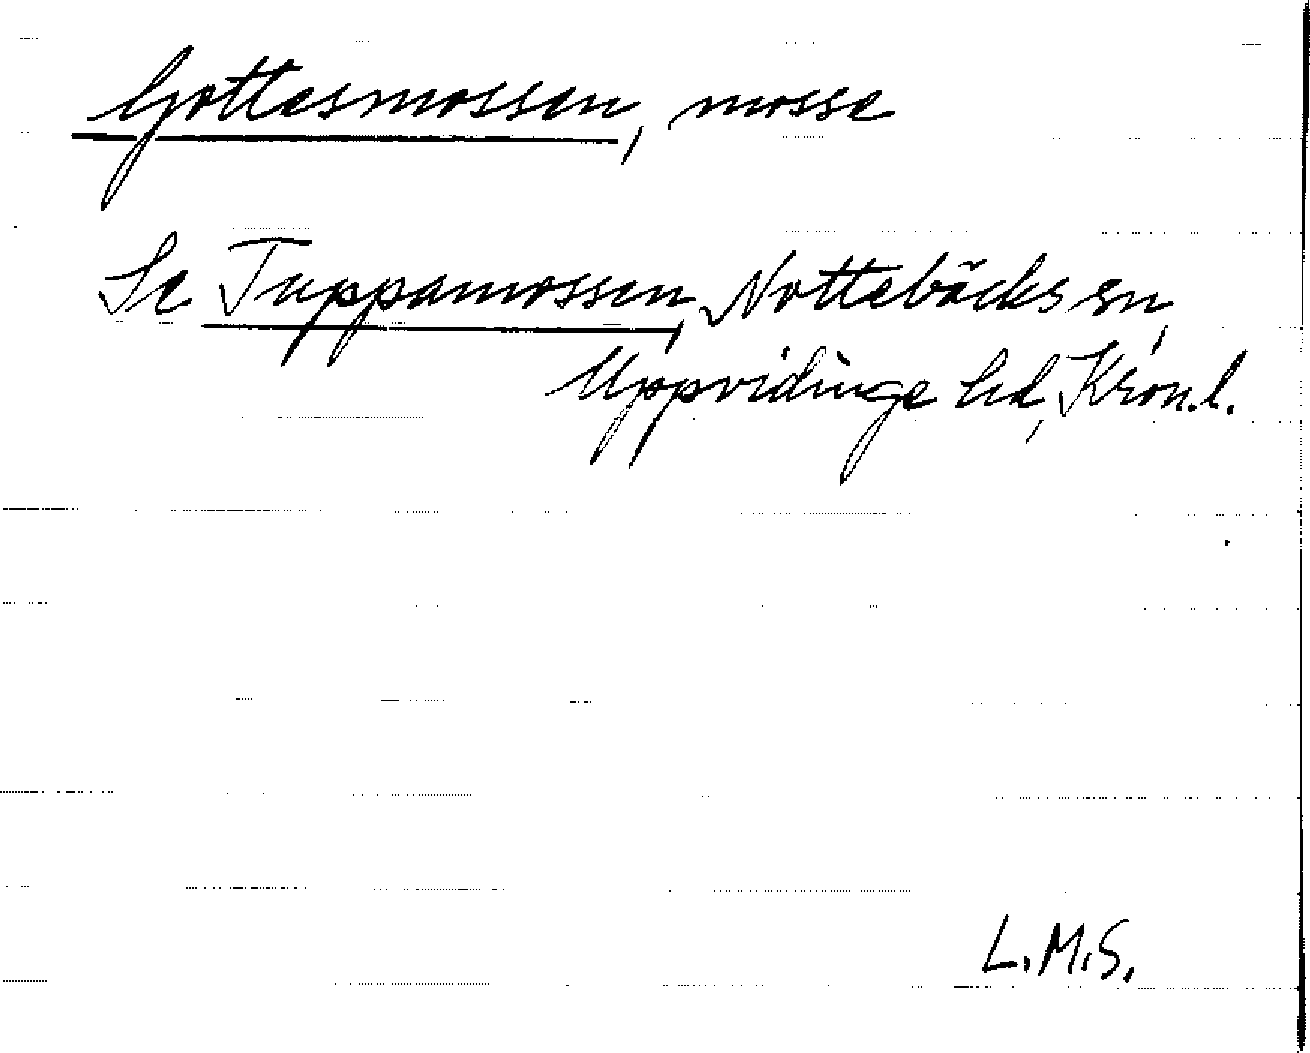 Gottesmossen, mosse
Se Tuppamossen, Nottebäcks sn,
Uppvidinge hd, Kron.l.
L.M.S.